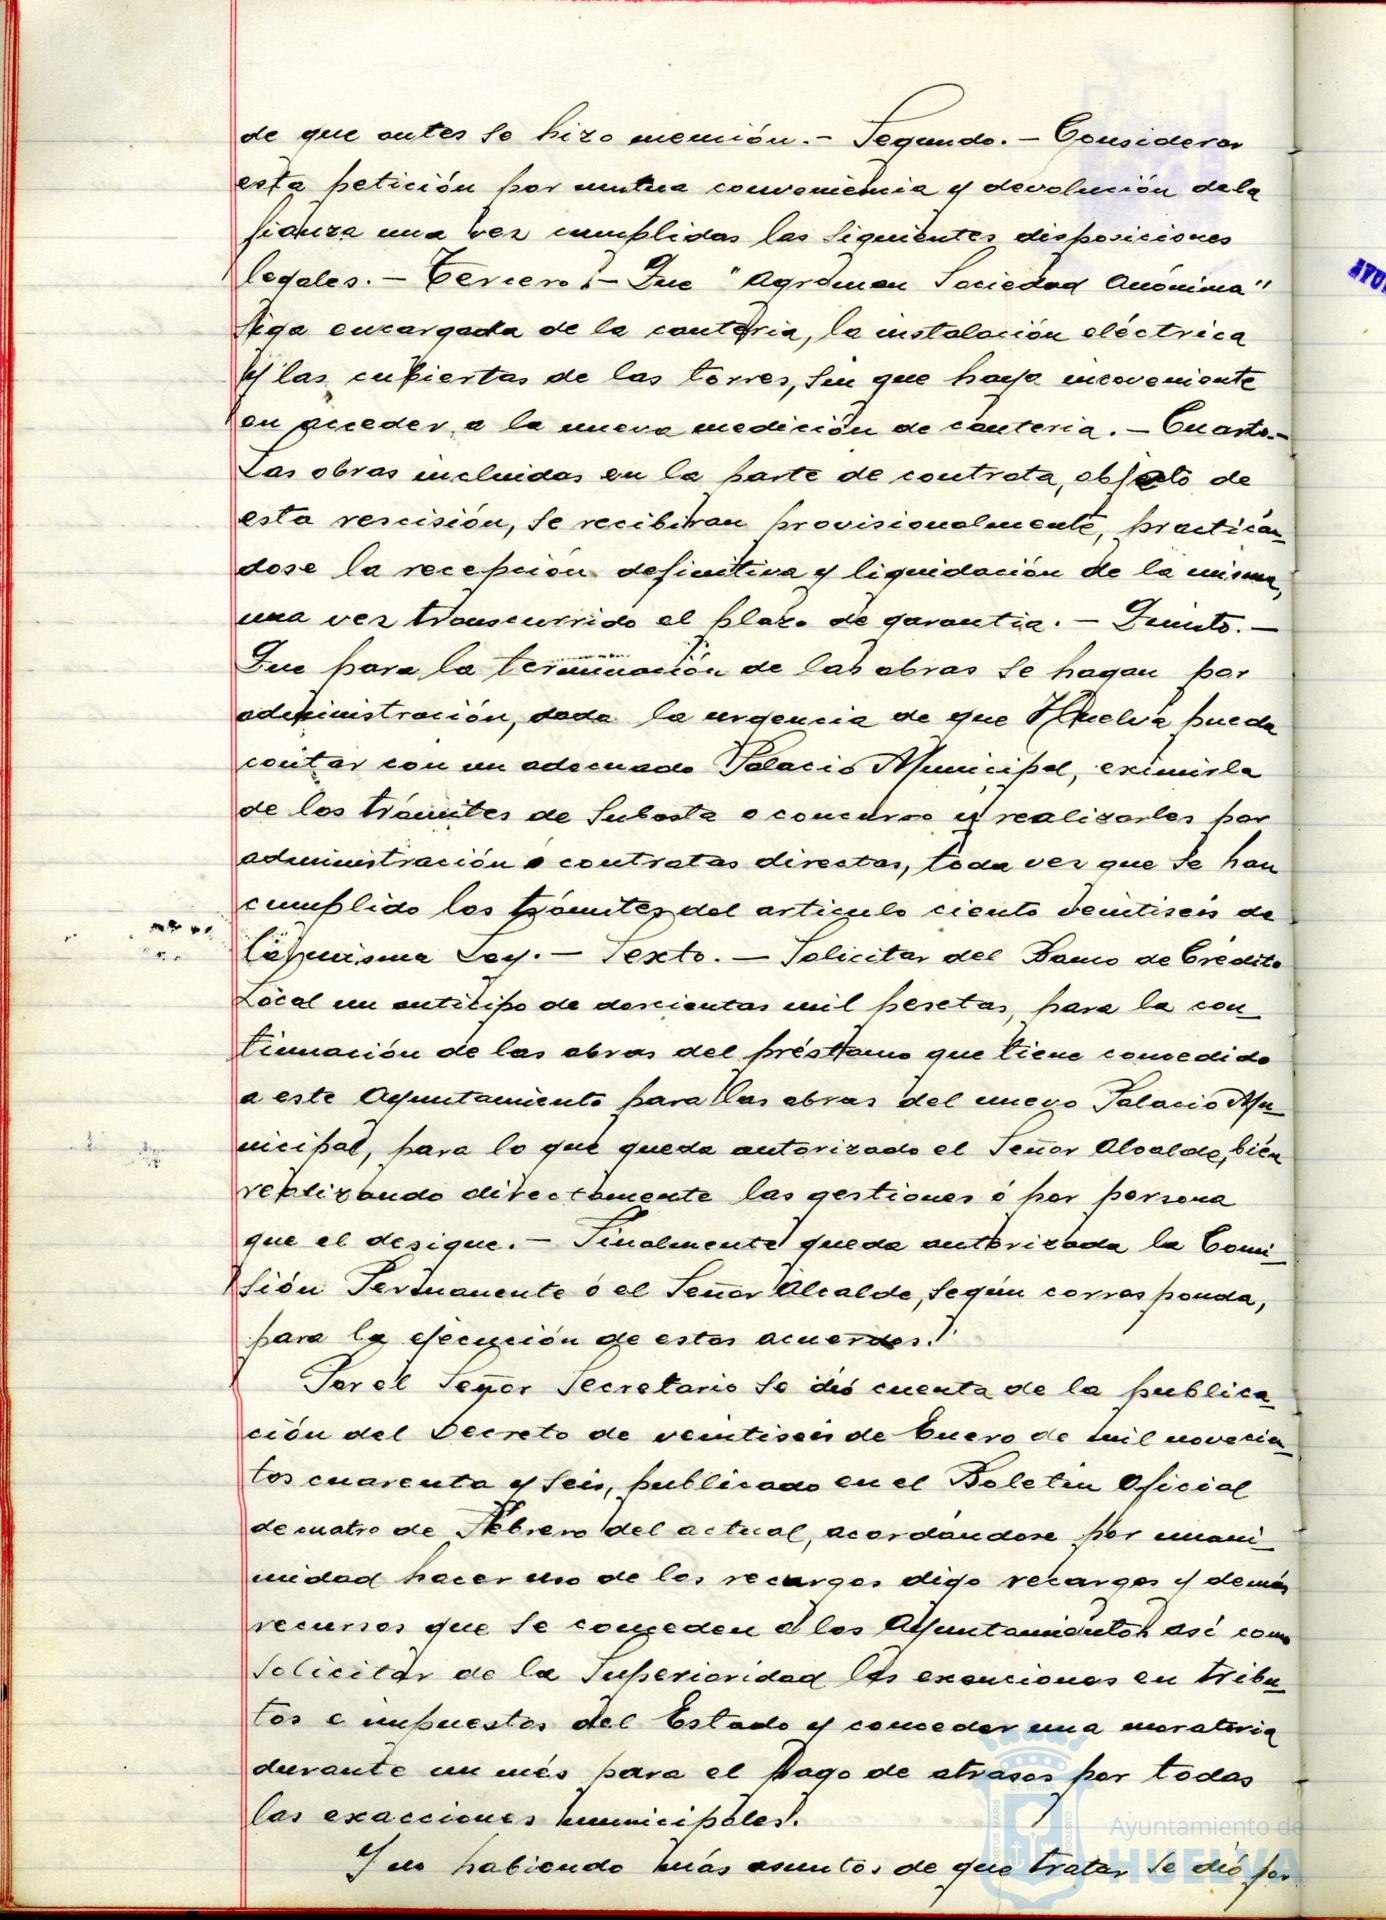 de que antes se hizo mención.- Segundo.- Considerar
esta petición por mutua conveniencia y devolución de la
fianza una vez cumplidas las siguientes disposiciones
legales.- Tercero.- Que "Agroman Sociedad Anónima"
siga encargada de la cantería, la instalación eléctrica
y las cubiertas de las torres, sin que haya incoveniente
en acceder a la nueva medición de cantería.- Cuarto.-
Las obras incluidas en la parte de contrata, objeto de
esta rescisión, se recibiran provisionalmente, practicán-
dose la recepción definitiva y liquidación de la misma,
una vez transcurrido el plazo de garantía.- Quinto.-
Que para la terminación de las obras se hagan por
administración, dada la urgencia de que Huelva pueda
contar con un adecuado Palacio Municipal, eximirla
de los trámites de subasta o concurso y realizarlas por
administración ó contratas directas, toda vez que se han
cumplido los trámites del articulo ciento veintiseis de
la misma Ley.- Sexto.- Solicitar del Banco de Crédito
Local un anticipo de doscientas mil pesetas, para la con-
tinuación de las obras del préstamo que tiene concedido
a este Ayuntamiento para las obras del nuevo Palacio Mu-
nicipal, para lo que queda autorizado el Señor Alcalde, bién
realizando directamente las gestiones ó por persona
que el desigue.- Finalmente queda autorizada la Comi-
sión Permanente ó el Señor Alcalde, según corresponda,
para la ejecución de estos acuerdos.
Por el Señor Secretario se dió cuenta de la publica-
ción del Decreto de veintiseis de Enero de mil novecien-
tos cuarenta y seis, publicado en el Boletin Oficial
de cuatro de Febrero del actual, acordándose por unani-
midad hacer uso de los recurgos digo recargos y demás
recursos que se conceden a los Ayuntamientos así como
solicitar de la Superioridad las exenciones en tribu-
tos e impuestos del Estado y conceder una moratoria
durante un més para el pago de atrasos por todas
las exacciones municipales.
Y no habiendo más asuntos de que tratar se dió por
Ayuntamiento de
HUELVA